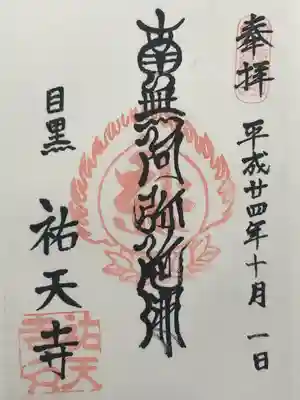 奉拝
平成廿四年十月一日
南無阿弥陀佛
目黒
祐天寺